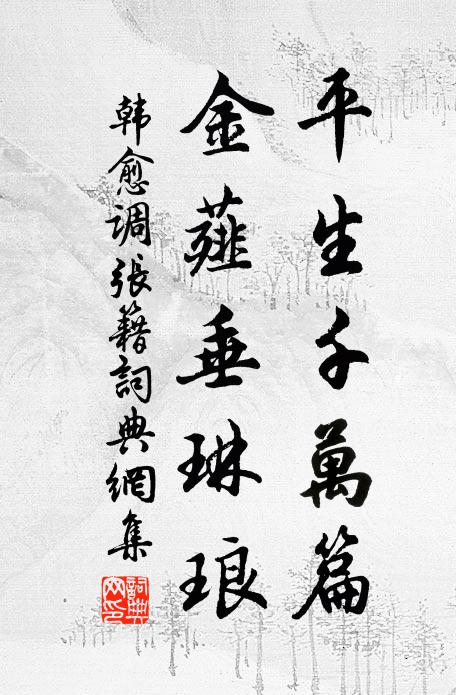 平生千萬篇
金薤垂琳琅
韩愈调張籍詞典網集
詞典網印